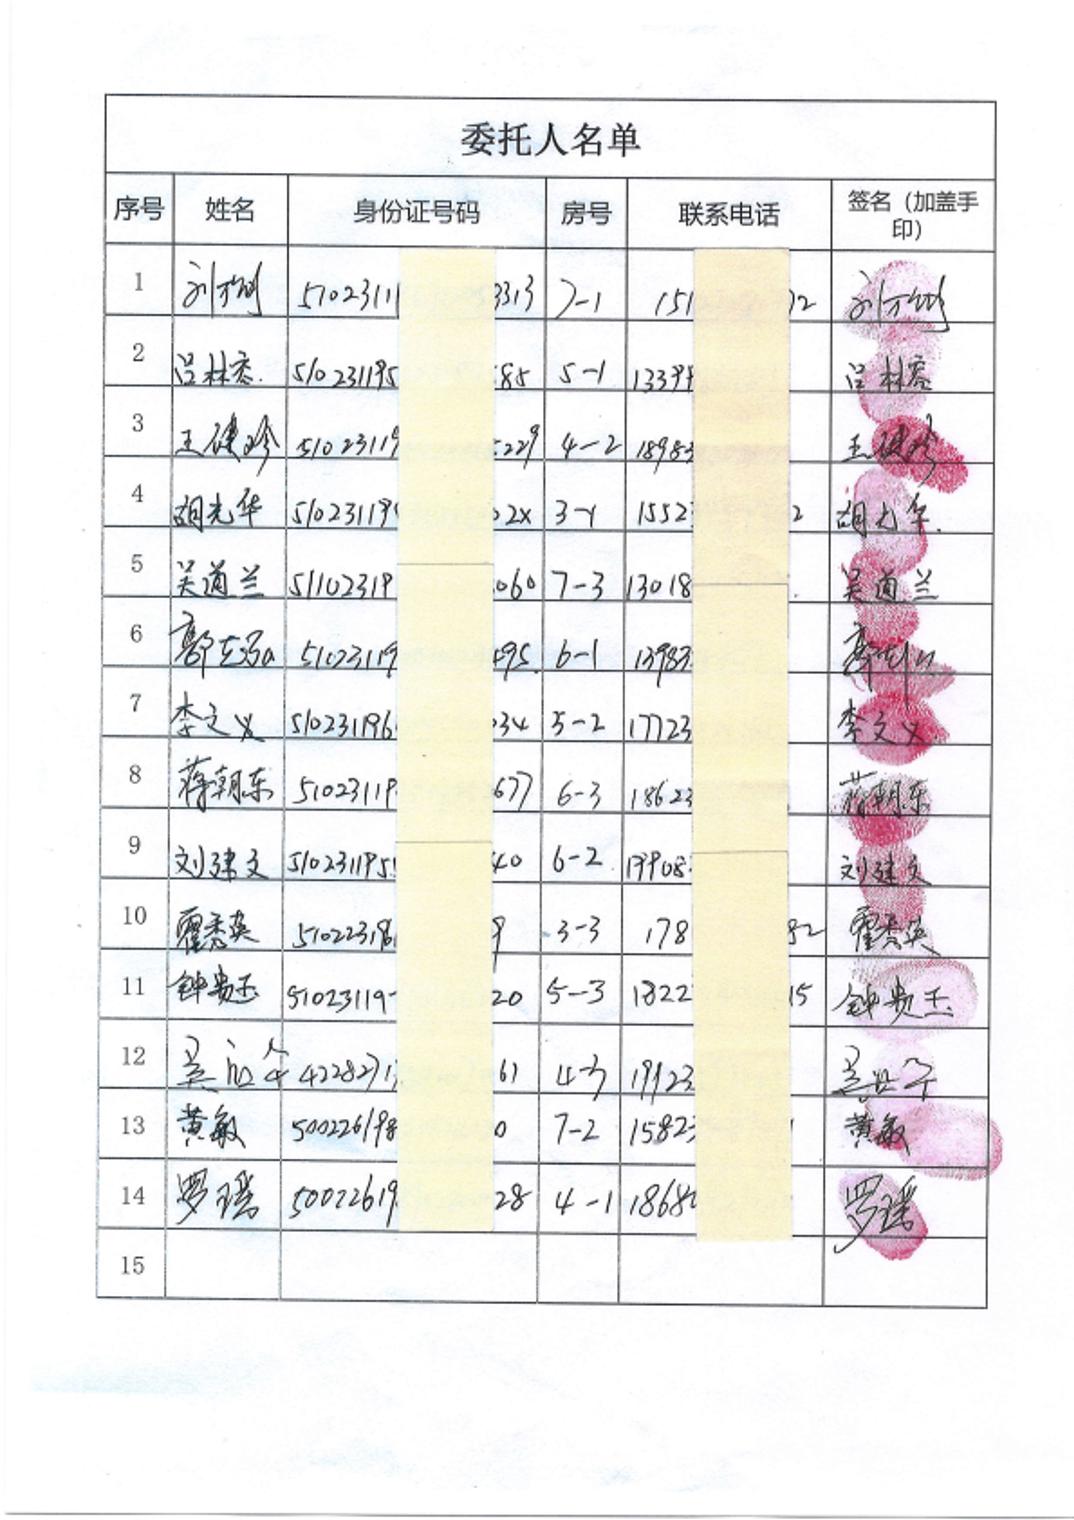 委托人名单
序号 姓名 身份证号码 房号 联系电话 签名（加盖手印）
1 51023111 3313 7-1 151 12
2 吕林容 510231195 585 5-1 13399 吕林容
3 王健珍 51023119 5229 4-2 18983 王健珍
4 胡光华 51023119 02X 3-1 1552 2 胡光华
5 吴道兰 51102319 060 7-3 13018 吴道兰
6 51023119 595 6-1 13983
7 李文义 510231196 034 5-2 17723 李文义
8 蒋朝东 51023119 677 6-3 18623 蒋朝东
9 刘建文 510231195 40 6-2 139908 刘建文
10 霍秀英 51022319 9 3-3 178 82 霍秀英
11 钟贵玉 51023119 20 5-3 1822 15 钟贵玉
12 422827 61 4-3 19923
13 黄敏 500226198 0 7-2 15823 黄敏
14 罗瑶 50022619 28 4-1 1868 罗瑶
15